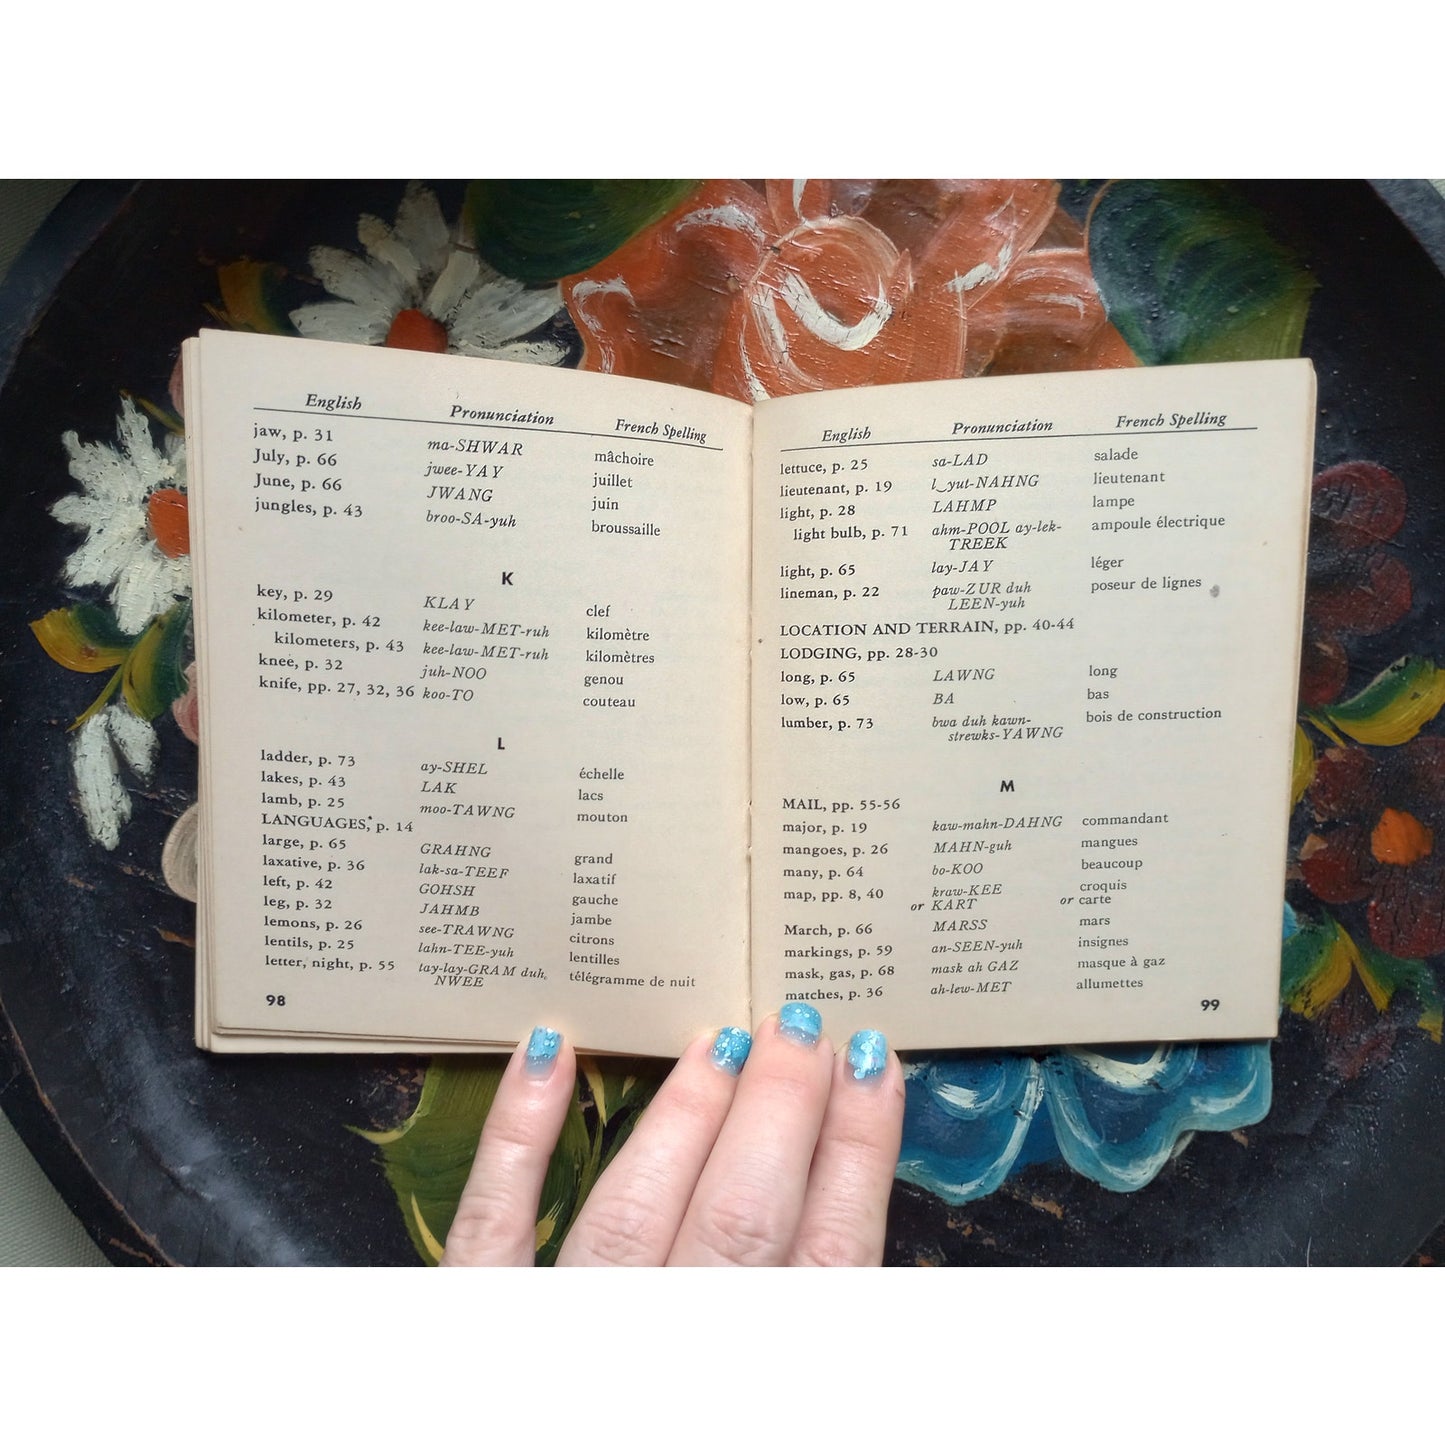 English Pronunciation French Spelling
jaw, p. 31 ma-SHWAR mâchoire
July, p. 66 jwee-YAY juillet
June, p. 66 JWANG juin
jungles, p. 43 broo-SA-yuh broussaille
K
key, p. 29 KLAY clef
kilometer, p. 42 kee-law-MET-ruh kilomètre
kilometers, p. 43 kee-law-MET-ruh kilomètres
knee, p. 32 juh-NOO genou
knife, pp. 27, 32, 36 koo-TO couteau
L
ladder, p. 73 ay-SHEL échelle
lakes, p. 43 LAK lacs
lamb, p. 25 moo-TAWNG mouton
LANGUAGES, p. 14
large, p. 65 GRAHNG grand
laxative, p. 36 lak-sa-TEEF laxatif
left, p. 42 GOHSH gauche
leg, p. 32 JAHMB jambe
lemons, p. 26 see-TRAWNG citrons
lentils, p. 25 lahn-TEE-yuh lentilles
letter, night, p. 55 tay-lay-GRAM duh télégramme de nuit
NWEE
98
English Pronunciation French Spelling
lettuce, p. 25 sa-LAD salade
lieutenant, p. 19 l‿yut-NAHNG lieutenant
light, p. 28 LAHMP lampe
light bulb, p. 71 ahm-POOL ay-lek- ampoule électrique
TREEK
light, p. 65 lay-JAY léger
lineman, p. 22 paw-ZUR duh poseur de lignes
LEEN-yuh
LOCATION AND TERRAIN, pp. 40-44
LODGING, pp. 28-30
long, p. 65 LAWNG long
low, p. 65 BA bas
lumber, p. 73 bwa duh kawn- bois de construction
strewks-YAWNG
M
MAIL, pp. 55-56
major, p. 19 kaw-mahn-DAHNG commandant
mangoes, p. 26 MAHN-guh mangues
many, p. 64 bo-KOO beaucoup
map, pp. 8, 40 kraw-KEE croquis
or KART or carte
March, p. 66 MARSS mars
markings, p. 59 an-SEEN-yuh insignes
mask, gas, p. 68 mask ah GAZ masque à gaz
matches, p. 36 ah-lew-MET allumettes
99